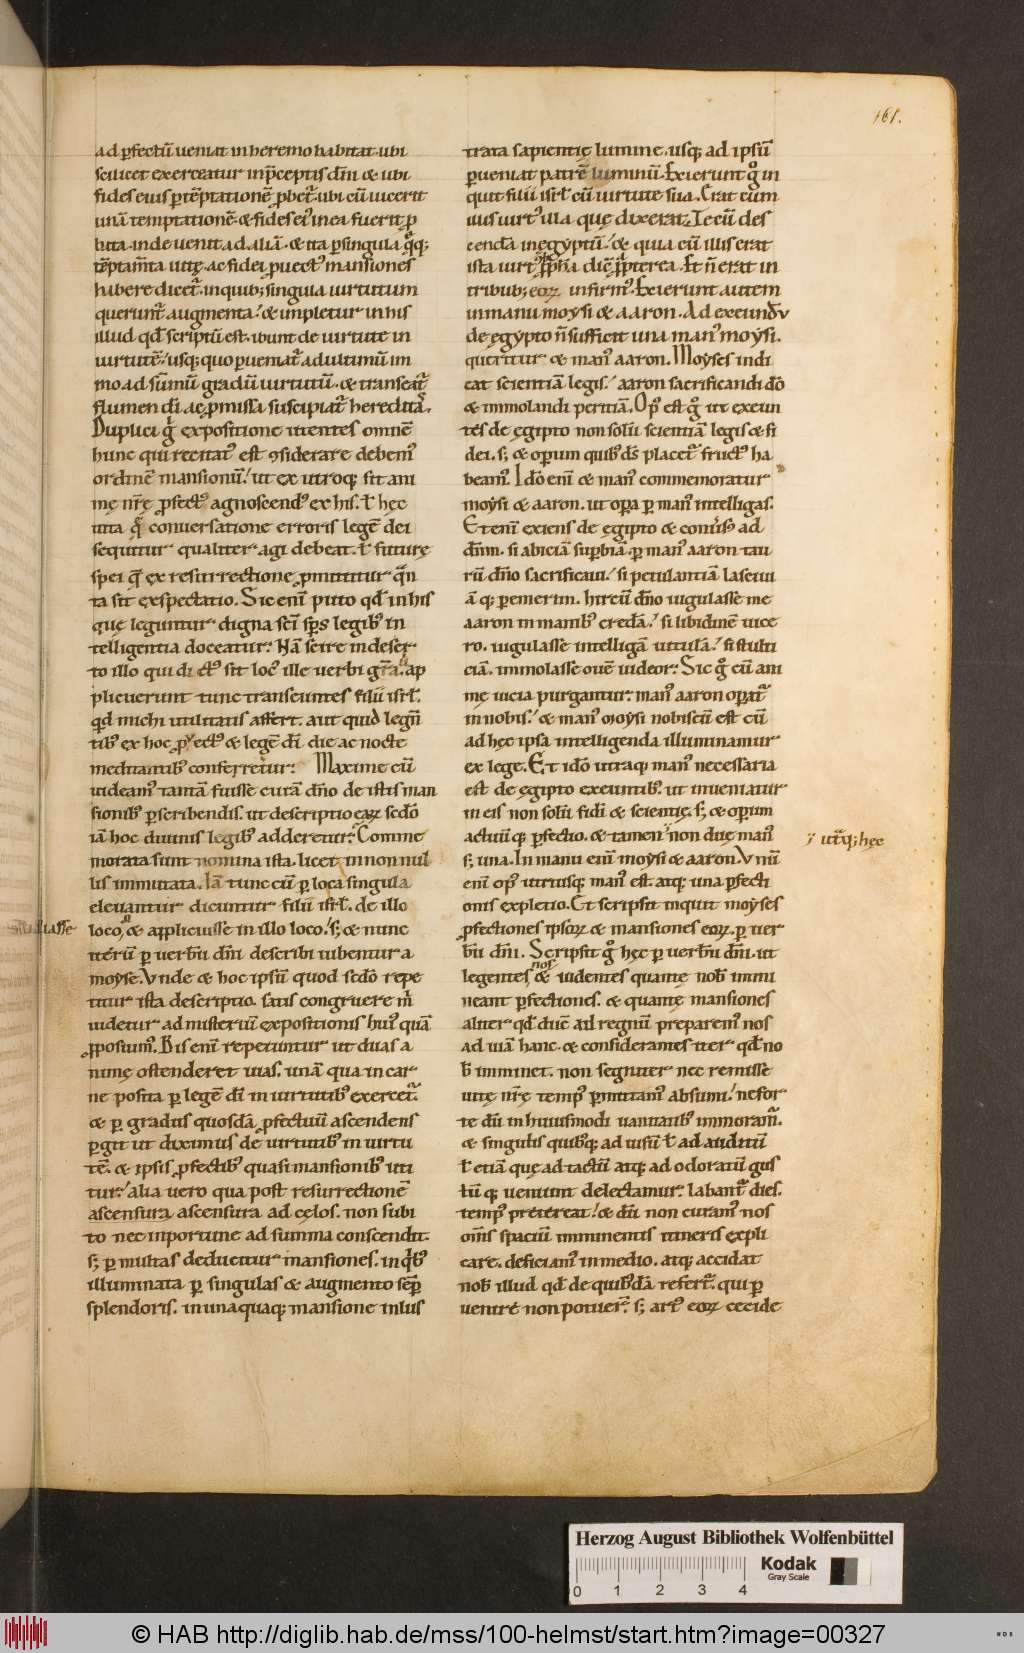 161.
ad ꝑfectū ueniat in heremo habitat. ubi
scilicet exerceatur in p̄ceptis dn̄i & ubi
fides eius ꝑ tēptationē ꝓbet᷑. ubi cū uicerit
unā temptationē. & fides ei᷒ in ea fuerit ꝓ
bata. inde uenit ad aliā. & ita ꝑ singula q̊q;
tēptam̄ta uitę. ac fidei ꝓuect᷒ mansiones
habere dicet᷑. in quib; singula uirtutum
querunt᷑ augmenta. & impletur in his
illud qd̄ scriptū est. ibunt de uirtute in
uirtutē. usq; quo ꝑueniat᷑ ad ultimū im
mo ad sūmū gradū uirtutū. & transeat᷑
flumen dī ac ꝓmissa suscipiat᷑ hereditas.
Duplici g̊ expositione utentes omnē
hunc qui recitat᷒ est ꝯsiderare debem᷒
ordinē mansionū. ut ex utroq; sit ani
mę nr̄ę ꝓfect᷒ agnoscend᷒ ex his. ł hęc
uita q̄ conuersatione erroris legē dei
sequitur qualiter agi debeat. ł futurę
spei q̄ ex resurrectione ꝓmittitur q̄n
ta sit exspectatio. Sic eni puto qd̄ in his
quę leguntur digna sc̄i sp̄s legib᷒ in
telligentia doceatur. Nā scire in deser
to illo qui dict᷒ sit loc᷒ ille uerbi gr̄a. ap
plicuerunt tunc transeuntes filii isrł.
qd̄ michi utilitatis affert. aut quid legn̄
tib᷒ ex hoc ꝓfect᷒ & legē dī die ac nocte
meditantib᷒ conferretur. Maxime cū
uideam᷒ tantā fuisse curā dn̄o de istis man
sionib᷒ ꝑscribendis. ut descriptio eaꝝ sedo
iā hoc diuinis legib᷒ adderetur. Comme
morata sunt nomina ista. licet in non nul
lis immutata. Iā tunc cū ꝑ loca singula
eleuantur dicuntur filii isrł. de illo
loco & applicuisse in illo loco. s; & nunc
iterū ꝑ uerbū dn̄i describi iubentur a
moyse. Unde & hoc ipsū quod sedo repe
titur ista descriptio. satis congruere m̄
uidetur ad misteriū expositionis hui᷒ quā
ꝓposuim᷒. Bis enī repetuntur ut duas a
nimę ostenderet uias. unā qua in car
ne posita ꝑ legē dī in uirtutib᷒ exercet᷑.
& ꝑ gradus quosdā ꝓfectuū ascendens
ꝑgit ut diximus de uirtutib᷒ in uirtu
tē. & ipsis ꝓfectib᷒ quasi mansionib᷒ uti
tur. alia uero qua post resurrectionē
ascensura ascensura ad cęlos. non subi
to nec inportune ad summa conscendit.
s; ꝑ multas deducitur mansiones. in q̇b᷒
illuminata ꝑ singulas & augmento sēꝑ
splendoris. in unaquaq; mansione inlus
trata sapientię lumine. usq; ad ipsū
ꝑueniat patrē luminū. Exierunt g̊ in
quit filii isrł cū uirtute sua. Erat cum
illis uirt᷒ illa quę dixerat. Tecū des
cendā in egyptū. & quia cū illis erat
ista uirt᷒ ꝓph̄a dic̄ ꝓpterea. Et n̄ erat in
tribub; eoꝝ infirm᷒. Exierunt autem
in manu moysi & aaron. Ad exeundū
de egypto n̄ sufficit una man᷒ moysi.
queritur & man᷒ aaron. Moyses indi
cat scientiā legis. aaron sacrificandi do
& immolandi peritiā. Op᷒ est g̊ ut exeun
tes de egipto non solū scientiā legis & fi
dei. s; & operum quib᷒ ds̄ placet᷑ fruct᷒ ha
beam᷒. Ido enī & man᷒ commemoratur
moysi & aaron. ut opera ꝑ man᷒ intelligas.
Et enī exiens de egipto & conuers᷒ ad
dn̄m. si abiciā suꝑbiā. ꝑ man᷒ aaron tau
rū dn̄o sacrificaui. si petulantiā lasciui
ā q; ꝑemerim. hircū dn̄o iugulasse me
aaron in manib᷒ credā. si libidinē uice
ro. iugulasse intelligā uitulā. si stulti
ciā. immolasse ouē uideor. Sic g̊ cū ani
mę uicia purgantur. man᷒ aaron operat᷑
in nobis. & man᷒ moysi nobiscū est cū
ad hęc ipsa intelligenda illuminamur
ex lege. Et ido utraq; man᷒ necessaria
est de egipto exeuntib᷒. ut inueniatur
in eis non solū fidei & scientię. s; & operum
actuū q; ꝑfectio. & tamen non duę man᷒
s; una. In manu enī moysi & aaron. Unū
enī op᷒ utriusq; man᷒ est. atq; una ꝑfecti
onis expletio. Et scripsit inquit moyses
ꝓfectiones ipsoꝝ & mansiones eoꝝ. ꝑ uer
bū dn̄i. Scripsit g̊ hęc ꝑ uerbū dn̄i. ut
legentes nos & uidentes quantę nob̄ immi
neant ꝓfectiones. & quantę mansiones
aliter qd̄ duc̄ ad regnū preparem᷒ nos
ad uiā hanc. & considerantes iter qd̄ no
b̄ imminet. non segniter nec remisse
uitę nr̄ę temp᷒ ꝑmittam᷒ absumi. ne for
te dū in huiusmodi uanitatib᷒ immoram᷑.
& singulis quibusq; ad uisū ł ad auditū
ł etiā quę ad tactū atq; ad odoratū gus
tū q; ueniunt delectamur. labant᷑ dies.
temp᷒ pretereat. & dū non curam᷒ nos
om̄s spaciū imminentis itineris expli
care. deficiam᷒ in medio. atq; accidat
nob̄ illud qd̄ de quib᷒dā refert᷑. qui ꝑ
uenire non potuer̄. s; art᷒ eoꝝ cecide
utraq; hęc
Herzog August Bibliothek Wolfenbüttel
Kodak
Gray Scale
0 1 2 3 4
© HAB http://diglib.hab.de/mss/100-helmst/start.htm?image=00327